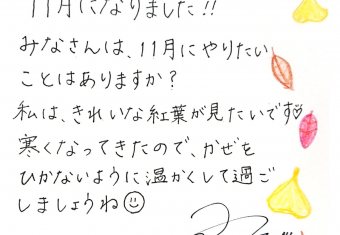 11月になりました!!
みなさんは、11月にやりたい
ことはありますか？
私は、きれいな紅葉が見たいです♡
寒くなってきたので、かぜを
ひかないように温かくして過ご
しましょうね☺